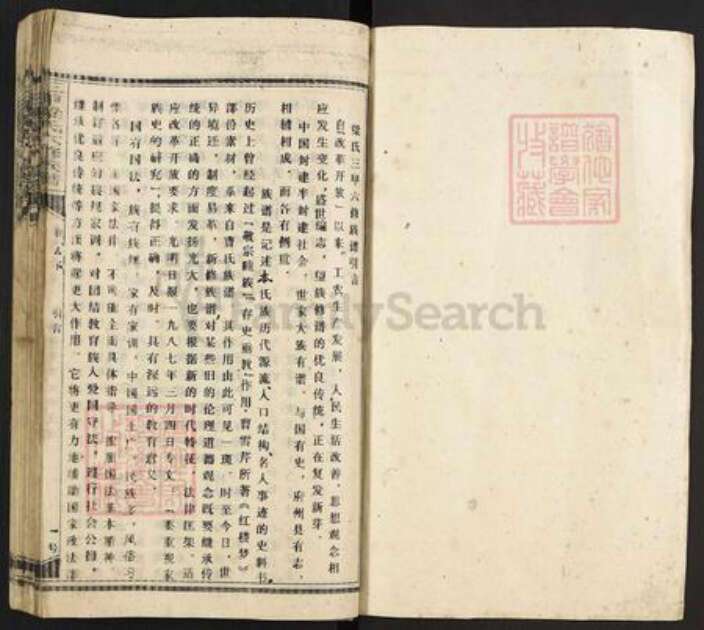 梁氏三甲六修族谱引言
自「改革开放」以来，工农生产发展，人民生活改善，思想观念相
应发生变化，盛世编志，望族修谱的优良传统，正在复发新芽。
中国封建半封建社会，世家大族有谱，与国有史，府州县有志，
相辅相成，而各有侧重。
族谱是记述本氏族历代源流、人口结构、名人事迹的史料书，
历史上曾经起过「敬宗睦族」「存史垂教」作用，曹雪芹所著《红楼梦》
部份素材，系来自曹氏族谱，其作用由此可见一斑，时至今日，世
异境迁，制度易革，新修族谱，对某些旧的伦理道德观念既要继承传
统的正确的方面发扬光大，也要根据新的时代特征，法律框架，适
应改革开放要求，光明日报一九八七年三月四日专文，「要重视家
族史的研究」提得正确，及时，具有深远的教育意义
国有国法，族有族规，家有家训，中国国土广，民族多，风俗习
惯各
制订适应的族规家训，对团结教育族人爱国守法，遵行社会公德，
继承优良传统等方面将起更大作用，它将更有力地
引言
FamilySearch